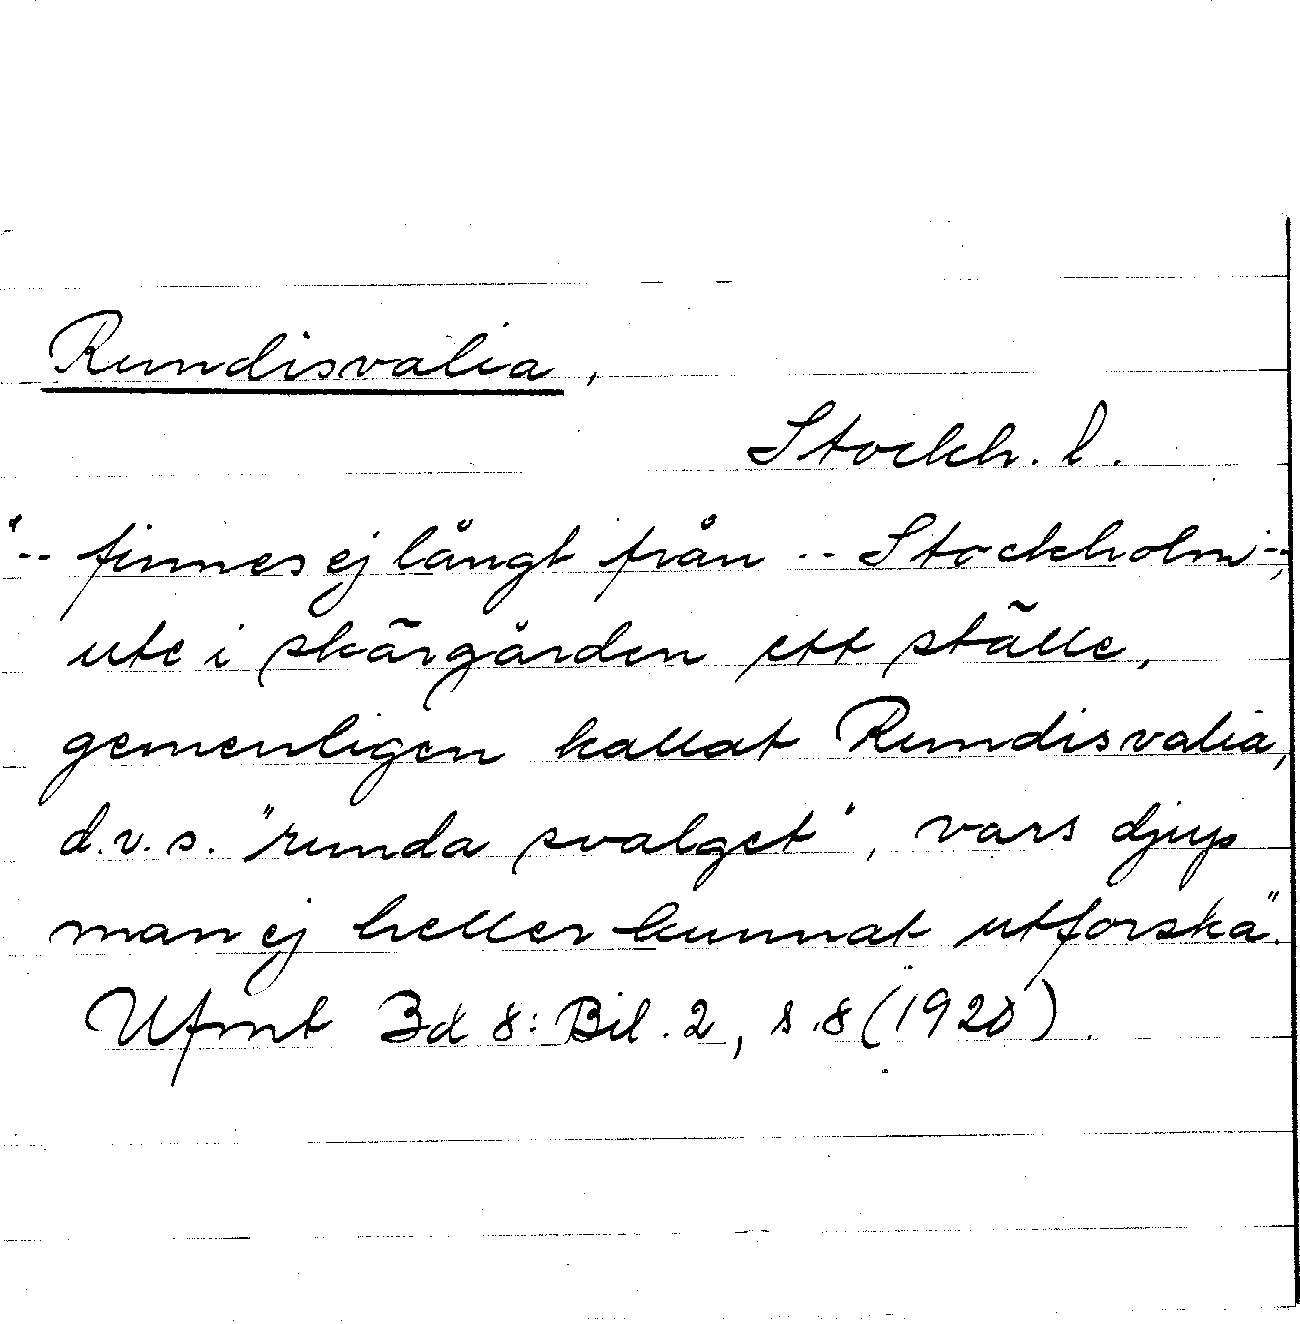 Rundisvalia,
Stockh. l.
"-- finnes ej långt från -- Stockholm --,
ute i skärgården ett ställe,
gemenligen kallat Rundisvalia,
d.v.s. "runda svalget", vars djup
man ej heller kunnat utforska".
Ufmt Bd 8: Bil. 2, s. 8 (1920).